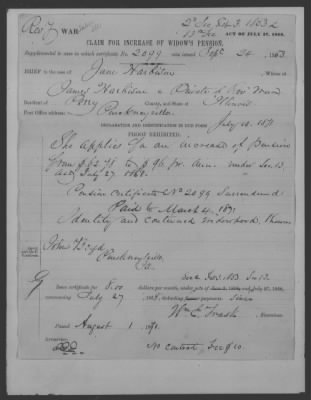 Rev. WAR
2d Sec. Feb. 3, 1853 &
13th Sec. ACT OF JULY 27, 1868.
CLAIM FOR INCREASE OF WIDOW'S PENSION,
Supplemental to case in which certificate No. 2099 was issued Sept. 24, 1853
BRIEF in the case of Jane Harbison, Widow of
James Harbison a Private of Rev. War
Resident of Perry County, and State of Illinois
Post Office address: Pinckneyville
DECLARATION AND IDENTIFICATION IN DUE FORM. July 10. 1871
PROOF EXHIBITED.
She applies for an increase of Pension
from to $96 per ann. under Sec. 13.
Act July 27 1868.
Pension Certificate No 2099 Surrendered
Paid to March 4, 1871
Identity and continued widowhood shown
John Boyd
Pinckneyville
Issue certificate for 8.00 dollars per month, under acts of Feb. 3. 1853 Sec 13. and July 27, 1868,
commencing July 27 1868, deducting payments since
Wm L. Trask, Examiner.
Passed August 1 1871.
No contract,